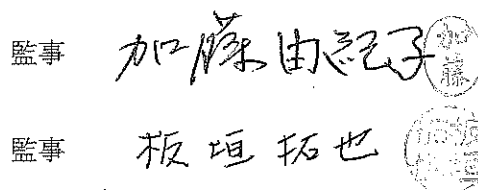 監事 加藤由紀子 加藤
監事 板垣拓也